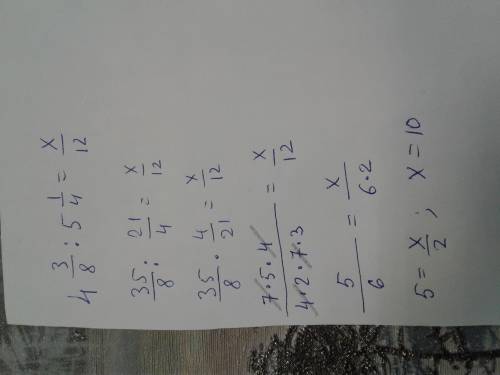 4 3/8 : 5 1/4 = x/12
35/8 : 21/4 = x/12
35/8 · 4/21 = x/12
7·5·4/4·2·7·3 = x/12
5/6 = x/6·2
5 = x/2 ; x = 10